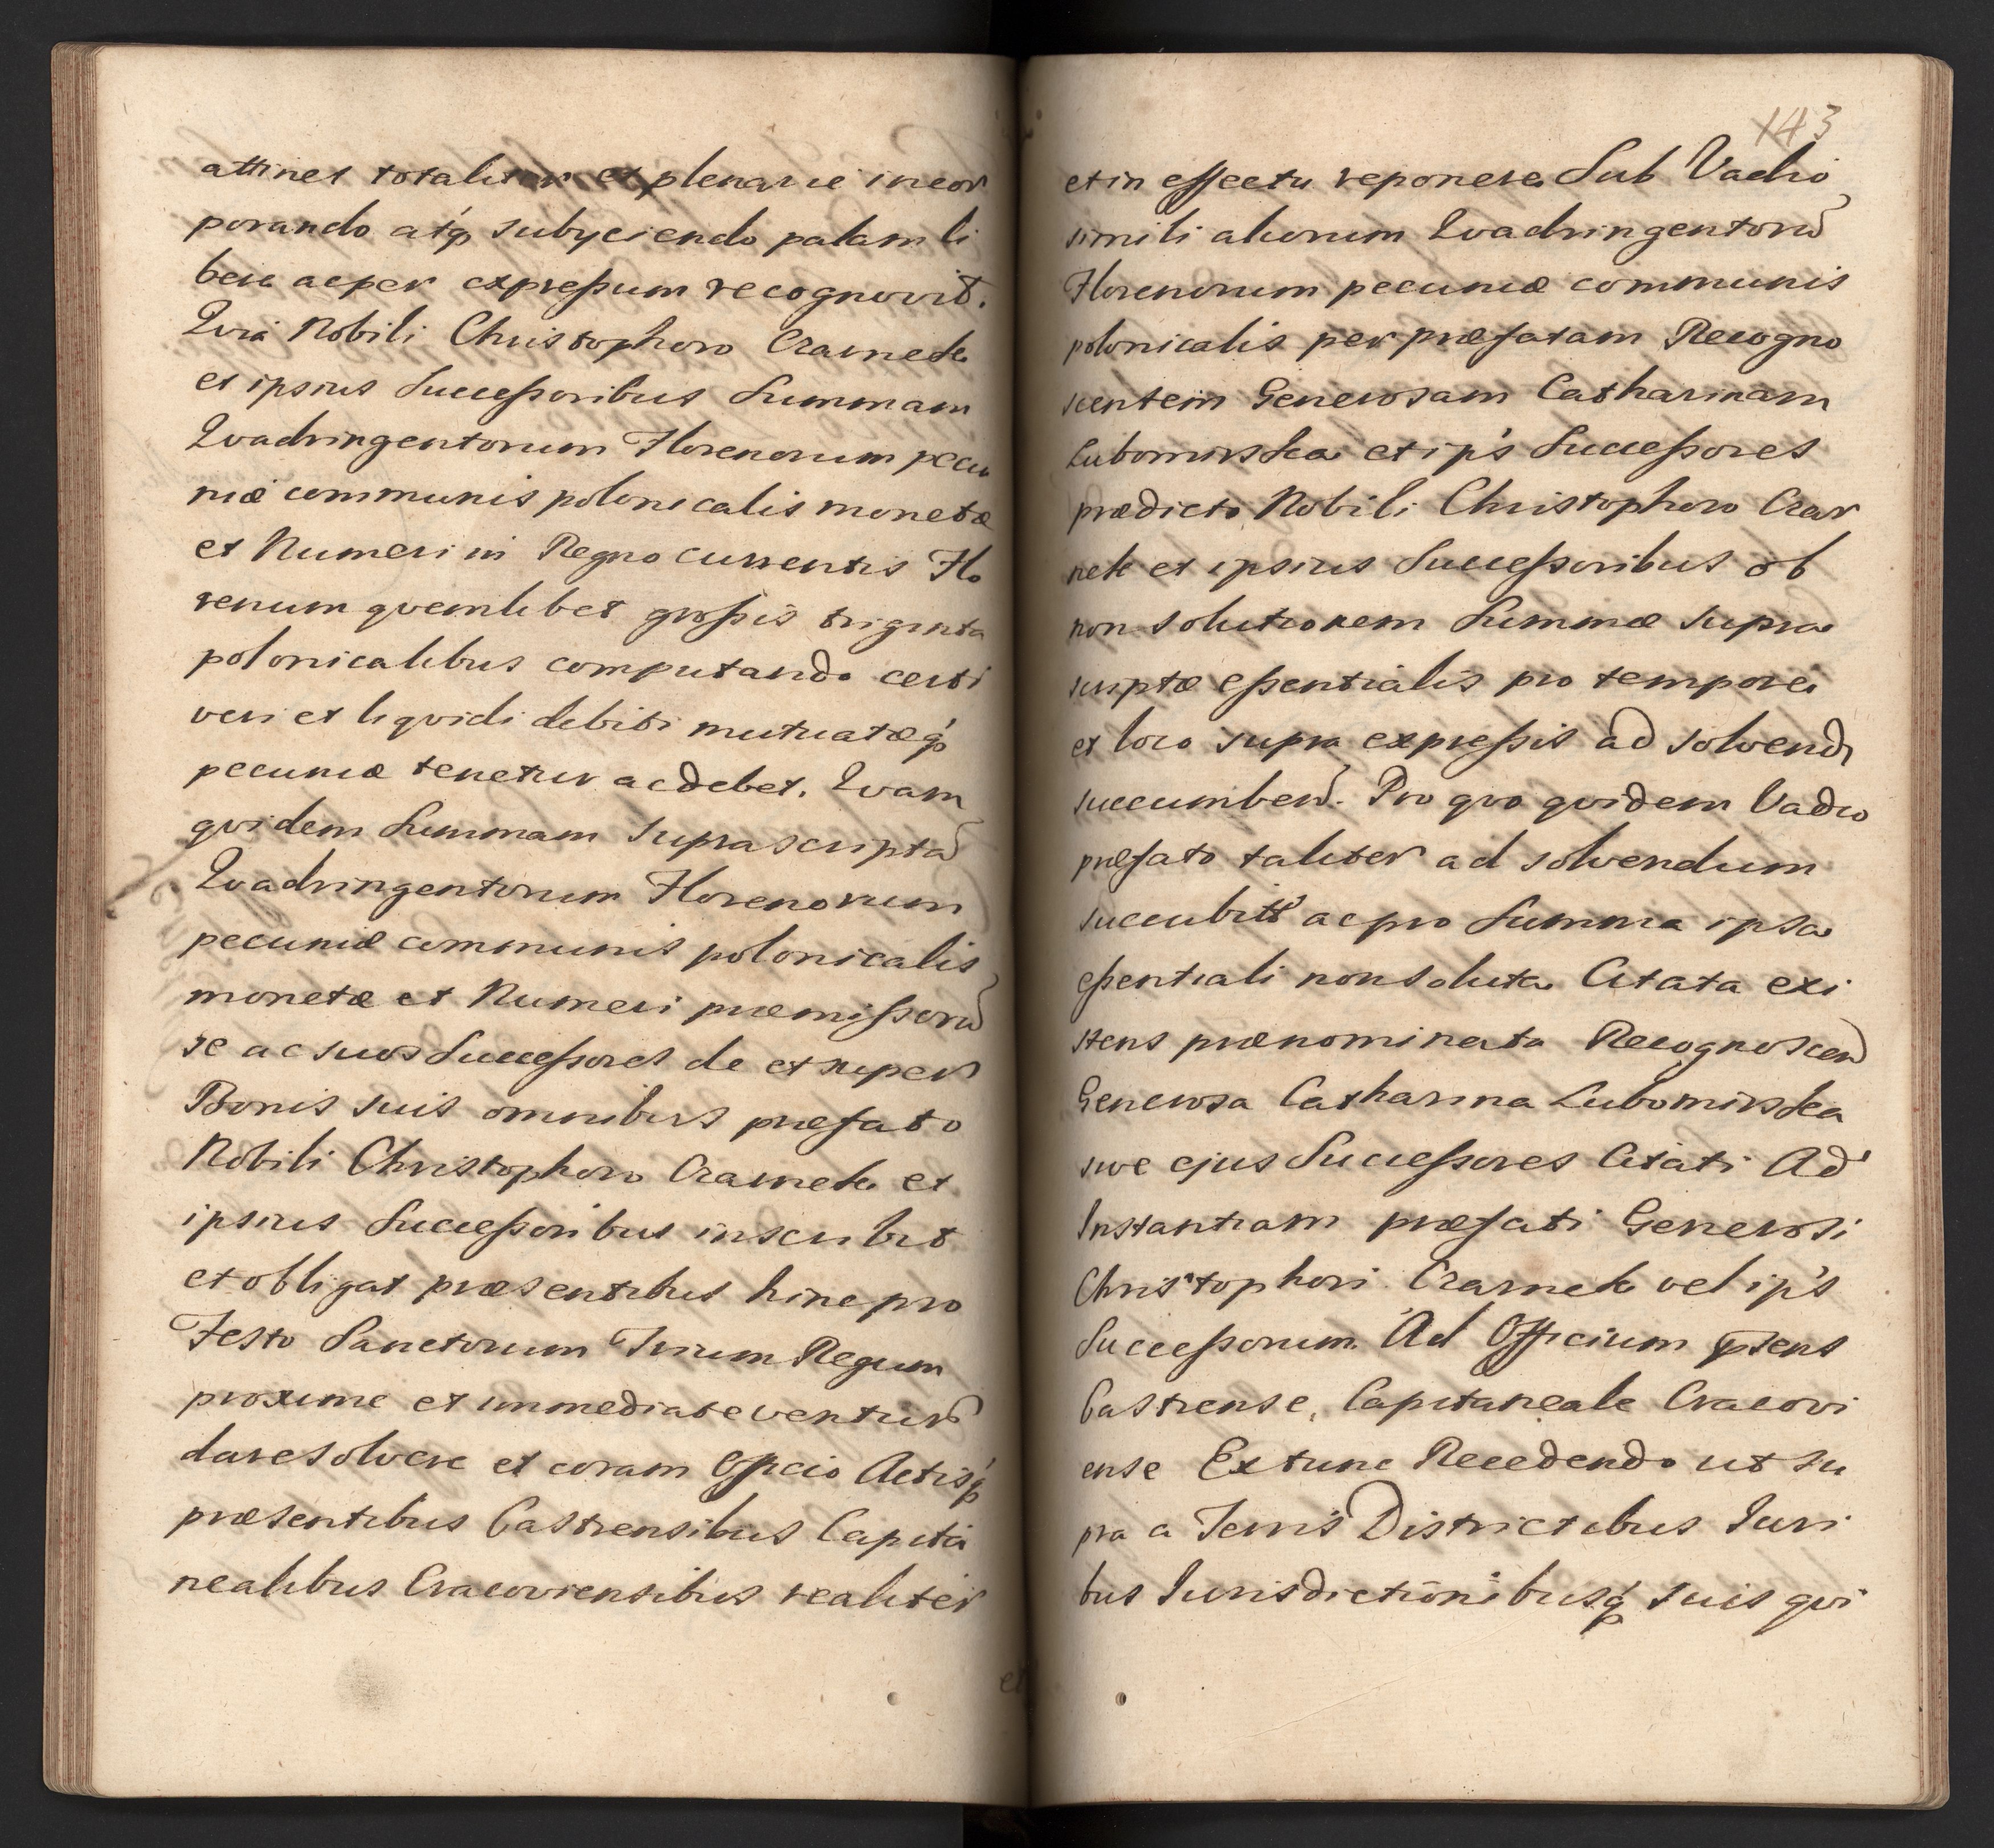 attinet totaliter et plenarie incor
porando atq́ subyciendo palam li
bere ac per expreßum recognovit.
Qvia Nobili Christophoro Czarnek
et ipsius Succeßoribus Summam
Qvadringentorum Florenorum pecu
niæ communis polonicalis monetæ
et Numeri in Regno currentis Flo
renum qvemlibet großis triginta
polonicalibus computando certi
veri et liqvidi debiti mutuatæq́
pecuniæ tenetur ac debet. Qvam
qvidem Summam supra scriptā
Qvadringentorum Florenorum
pecuniæ communis polonicalis
monetæ et Numeri præmißorū
se ac suos Succeßores de et super
Bonis suis omnibus præfato
Nobili Christophoro Czarnek et
ipsius Succeßoribus inscribit
et obligat præsentibus hinc pro
Festo Sanctorum Trium Regum
proxime et immediate venturō
dare solvere et coram Officio Actisq́
præsentibus Castrensibus Capita
nealibus Cracoviensibus realiter
et
143
et in effectu reponere Sub Vadio
simili aliorum Qvadringentorū
Florenorum pecuniæ communis
polonicalis per præfatam Recogno
scentem Generosam Catharinam
Lubomirska et ip's Succeßores
prædicto Nobili Christophoro Czar
nek et ipsius Succeßoribus ob
non solutionem Summæ supra
scriptæ eßentialis pro tempore
et loco supra expreßis ad solvend
succumbend. Pro qvo qvidem Vadio
præfato taliter ad solvendum
succubitō ac pro Summa ipsa
eßentiali non soluta Citata exi
stens prænominata Recognoscen
Generosa Catharina Lubomirska
sive ejus Succeßores Citati Ad
Instantiam præfati Generosi
Christophori Czarnek vel ip's
Succeßorum. Ad Officium p̄sens
Castrense, Capitaneale Cracovi
ense Extunc Recedendo ut su
pra a Terris Districtibus Iuri
bus Iurisdictionibusq́ suis qvi